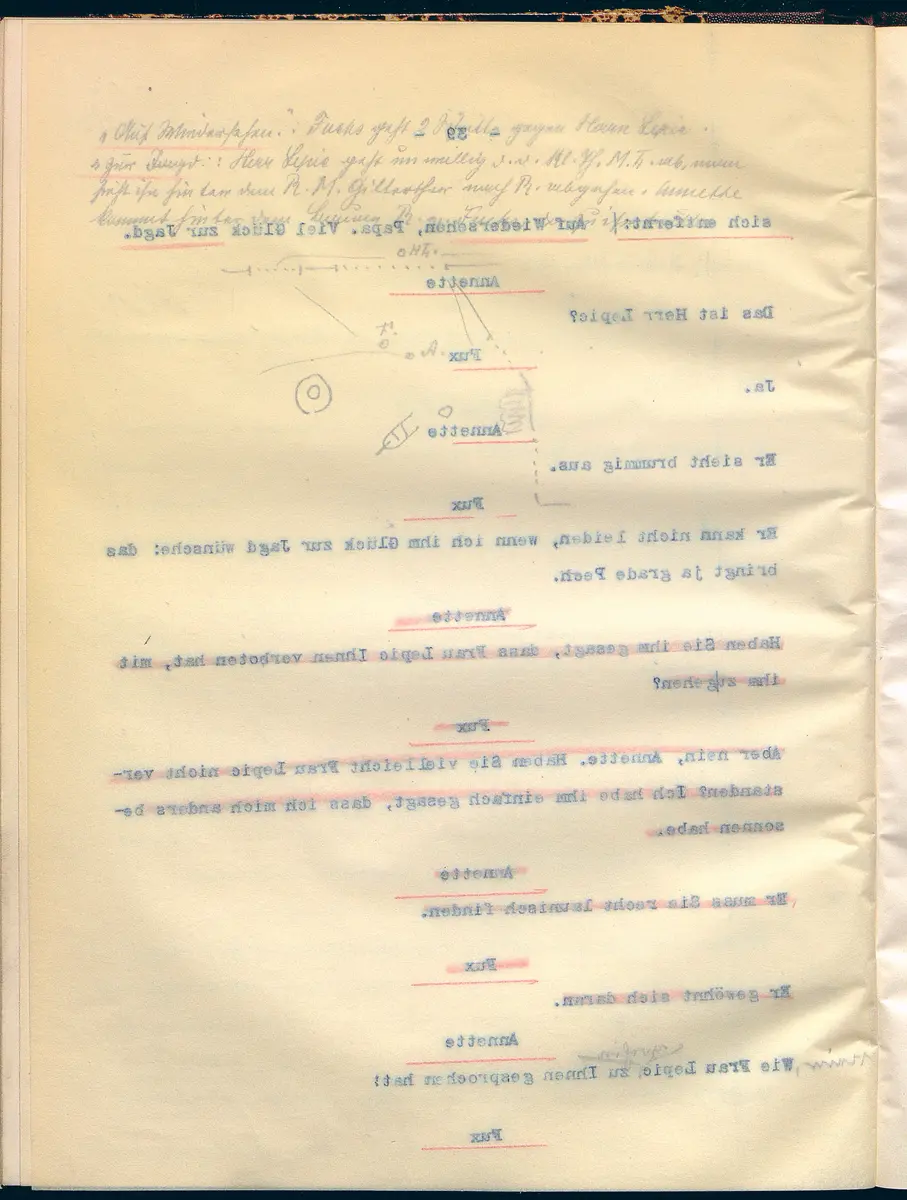 „Auf Wiedersehen.": Fuchs geht 2 Schritte gegen Herrn Lepic.
- 39 -
„zur Jagd.: Herr Lepic geht unwillig d. d. M. T. ab, man
sieht ihn hinter dem R. M. Gitterthor nach R. abgehen. Annette
kommt hinter dem R.
sich entfernt:/ Auf Wiedersehen, Papa. Viel Glück zur Jagd.
Annette
Das ist Herr Lepic?
Fux
A.
Ja.
Annette
Er sieht brummig aus.
Fux
Er kann nicht leiden, wenn ich ihm Glück zur Jagd wünsche: das
bringt ja grade Pech.
Annette
Haben Sie ihm gesagt, dass Frau Lepic Ihnen verboten hat, mit
ihm zu gehen?
Fux
Aber nein, Annette. Haben Sie vielleicht Frau Lepic nicht ver-
standen? Ich habe ihm einfach gesagt, dass ich mich anders be-
sonnen habe.
Annette
Er muss Sie recht launisch finden.
Fux
Er gewöhnt sich daran.
Annette
Wie Frau Lepic zu Ihnen gesprochen hat!
Fux